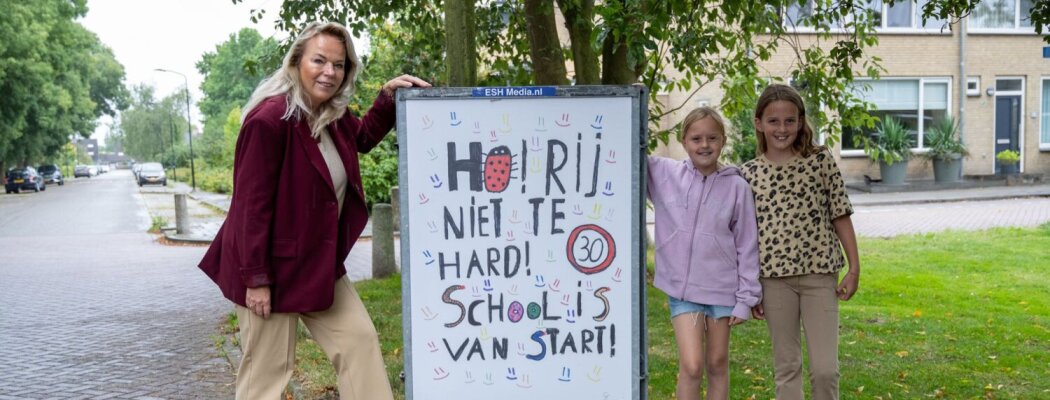 ESH Media.nl
HO! RIJ
NIET TE
HARD! 30
SCHOOL IS
VAN START!